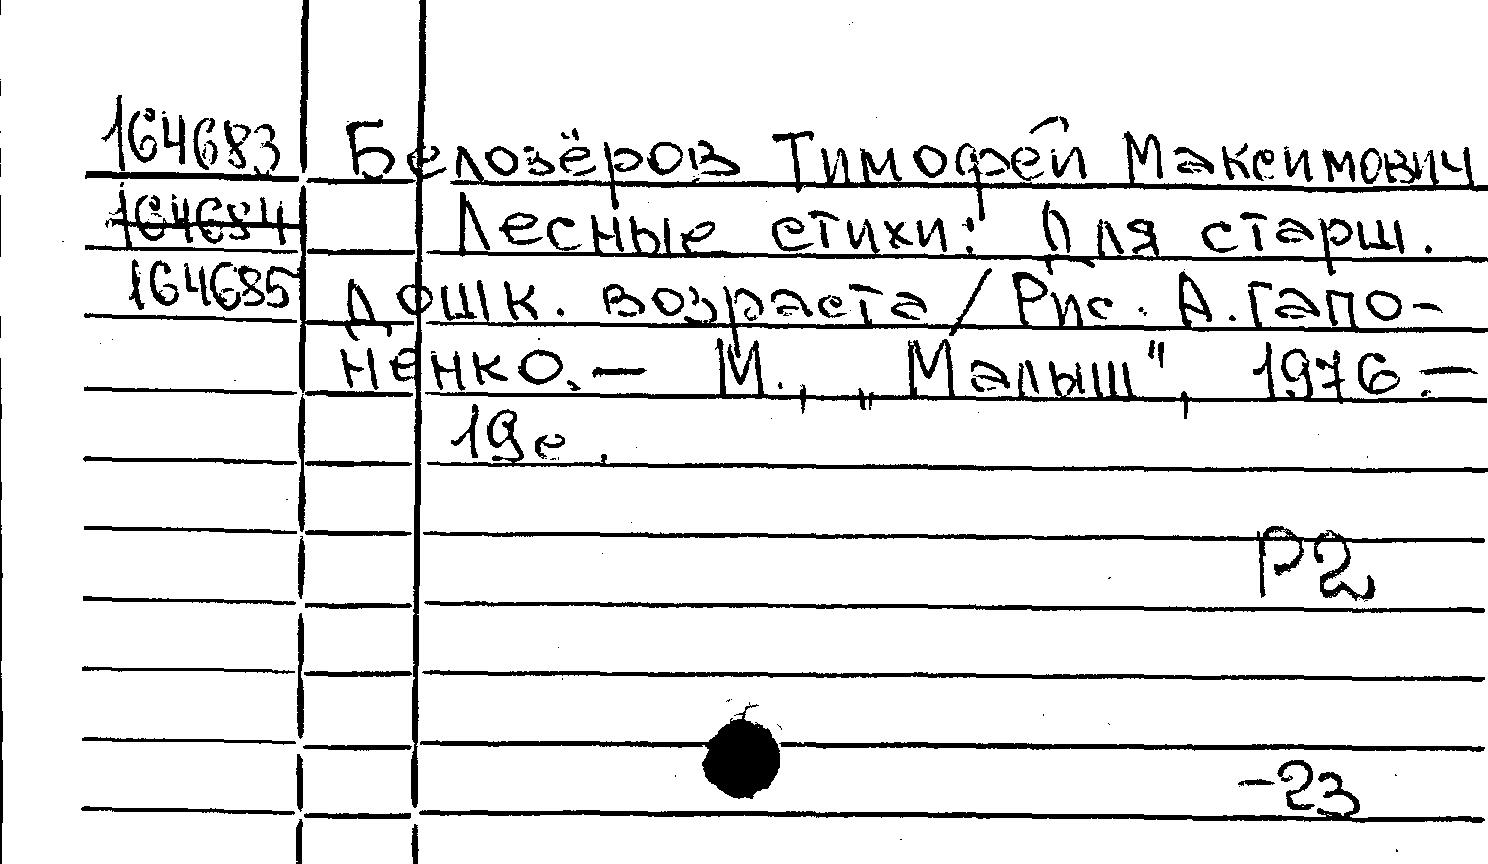 164683 Белозёров Тимофей Максимович
164684 Лесные стихи: Для старш.
164685 дошк. возраста / Рис. А. Гапо-
ненко. — М., „Малыш", 1976. —
19с.
Р2
-23